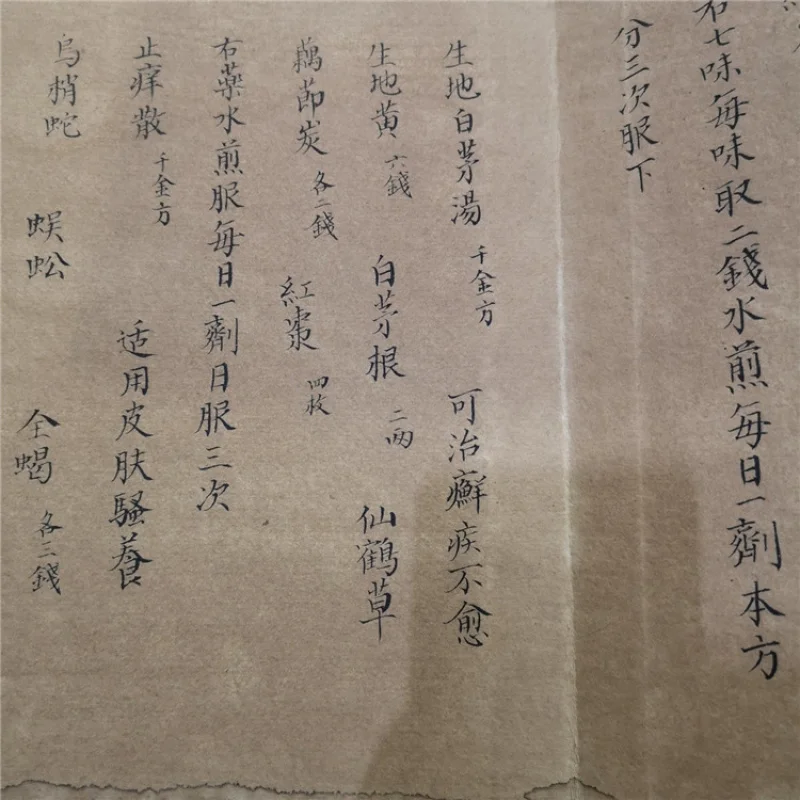 右七味每味取二錢水煎每日一劑本方
分三次服下
生地白茅湯 千金方 可治癬疾不愈
生地黄 六錢 白茅根 二两 仙鶴草
藕節炭 各二錢 紅棗 四枚
右藥水煎服每日一劑日服三次
止痒散 千金方 适用皮肤騷養
烏梢蛇 蜈蚣 全蝎 各三錢